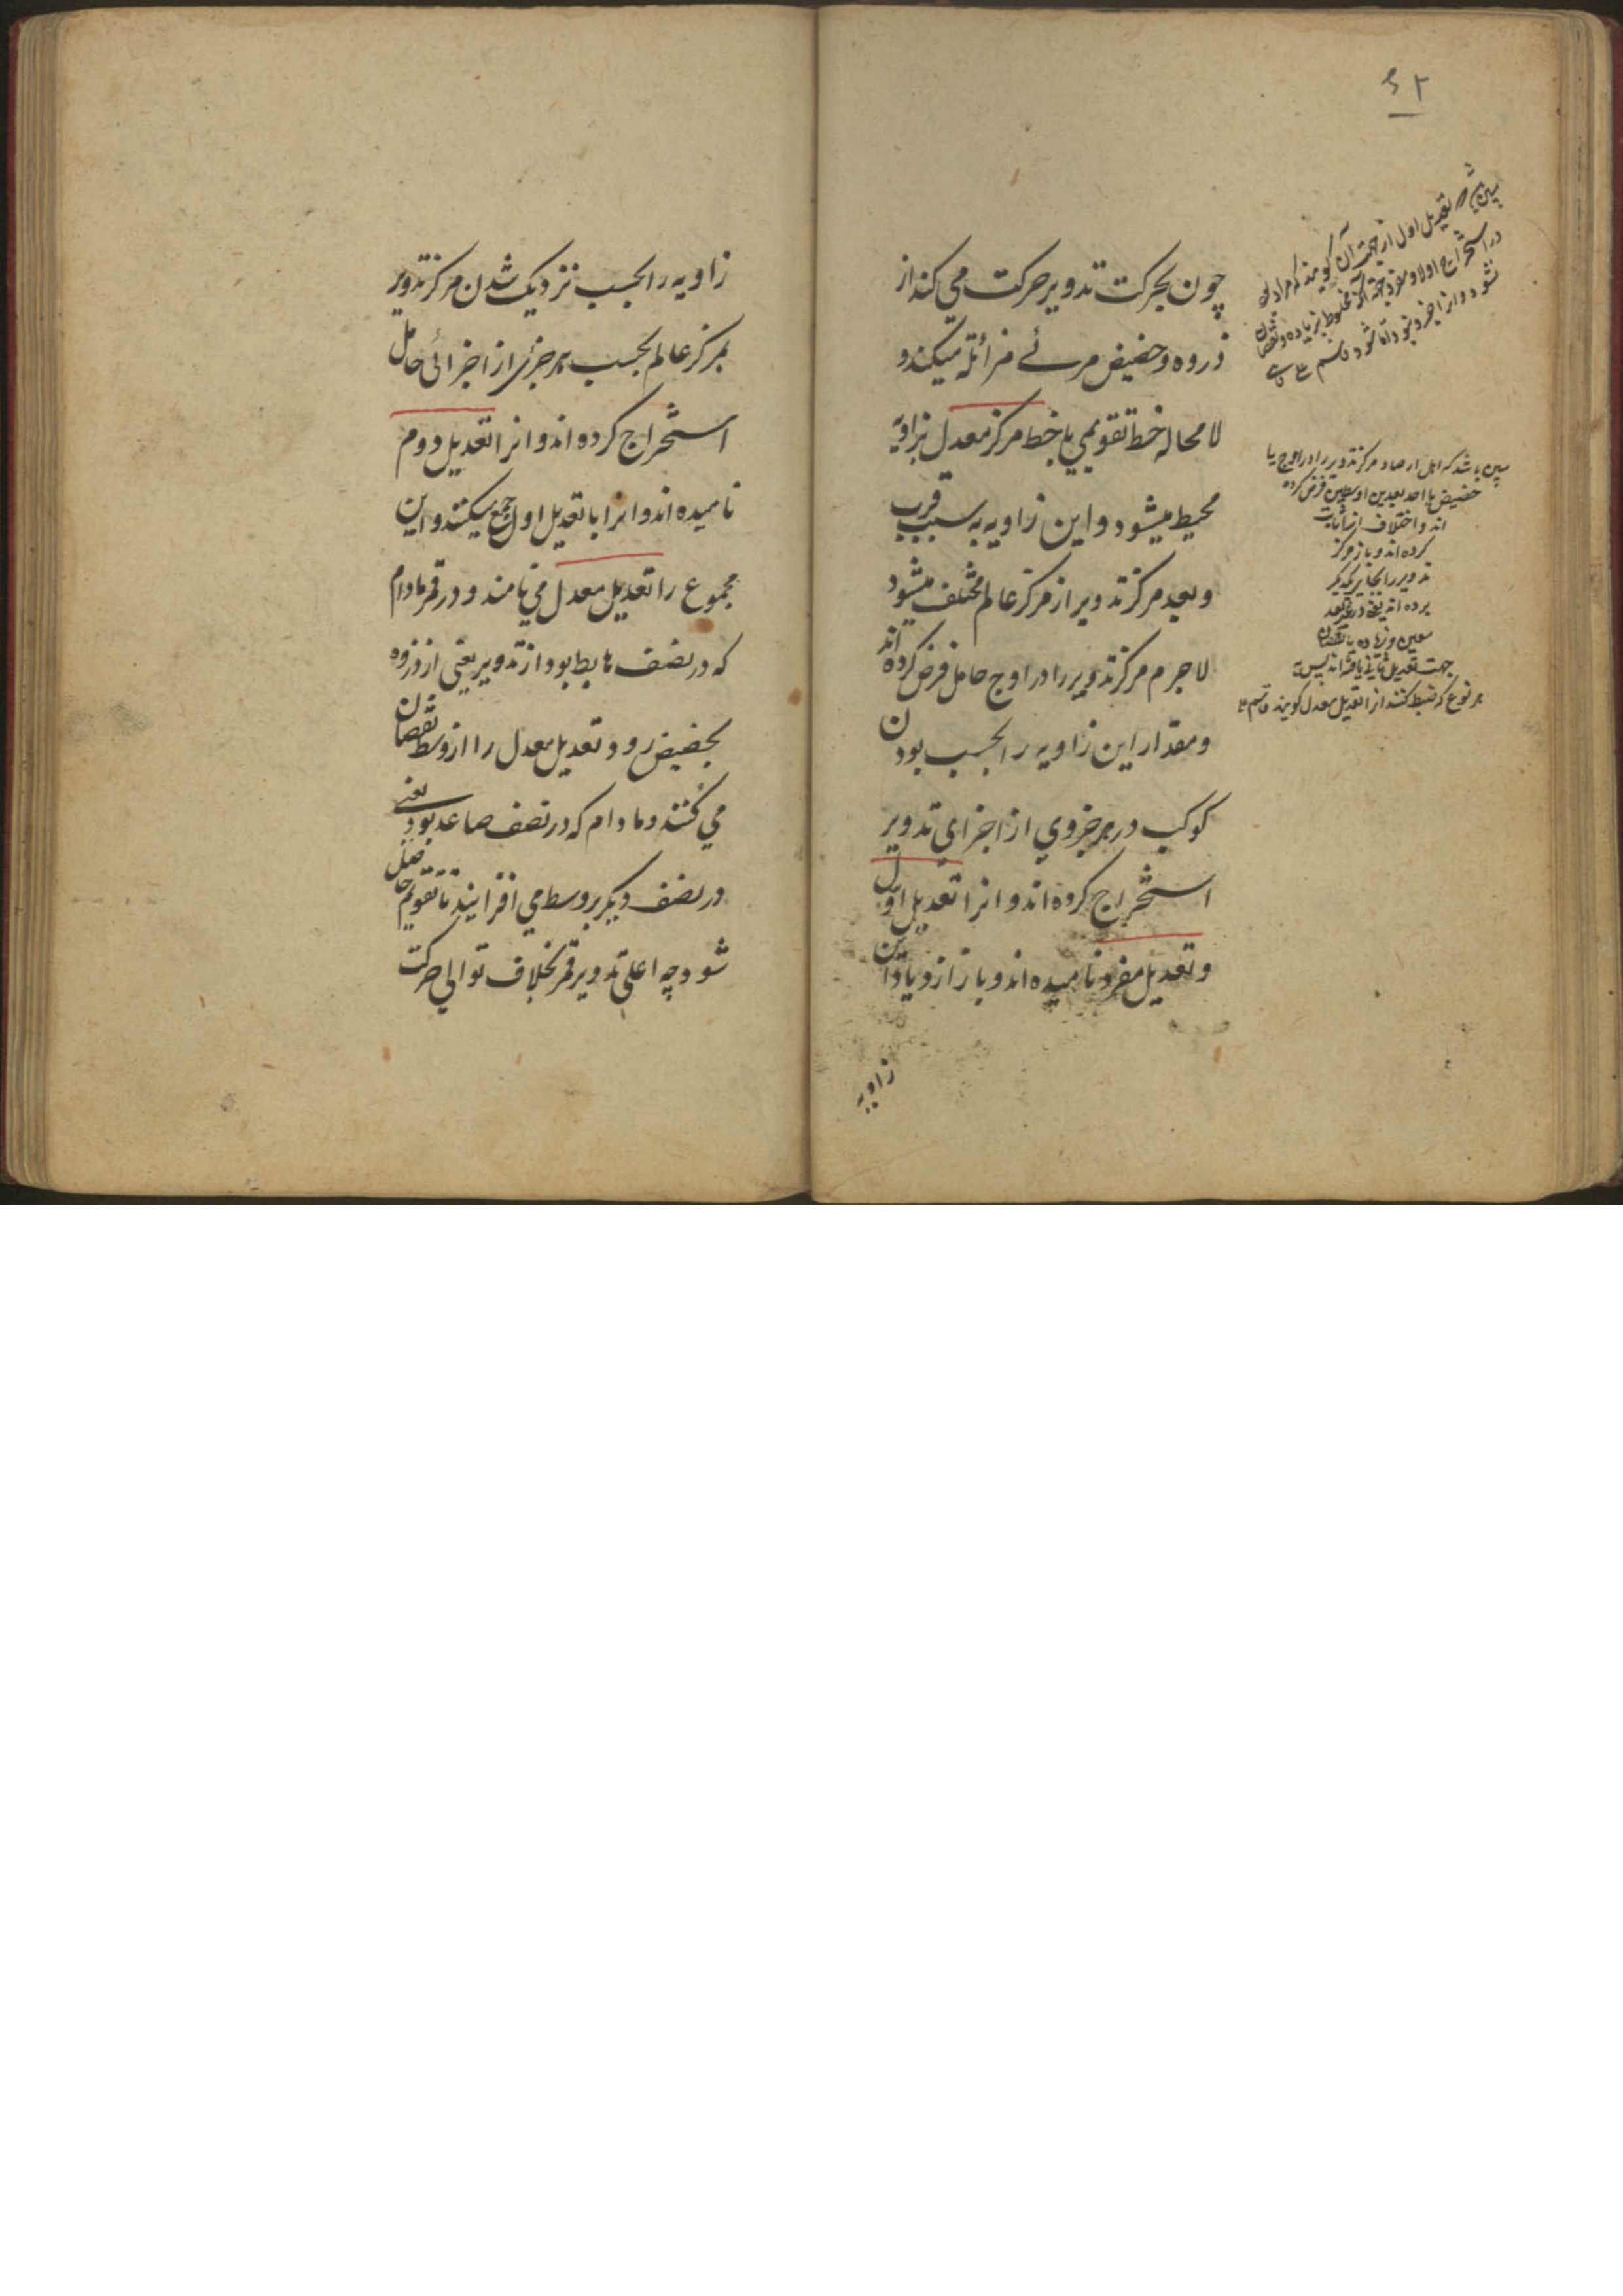 ۵۲
چون بحرکت تدویر حرکت می کند از
ذروه و حضیض مرئے مزائله میکند و
لا محاله خط تقویمی با خط مرکز معدل بزاویه
محیط میشود و این زاویه به سبب قرب
و بعد مرکز تدویر از مرکز عالم مختلف میشود
لا جرم مرکز تدویر را در اوج حامل فرض کرده اند
و مقدار این زاویه را بحسب بودن
کوکب در هر جزوی از اجزای تدویر
استخراج کرده اند و انرا تعدیل اول
و تعدیل مفرد نامیده اند و باز ازدیاد این
زاویه
تعدیل اول از جهت آن کویند که
در استخراج اولا و مفرد جهة آنکه مخلوط بزیاده و نقصان
نشود
مرکز تدویر را در اوج یا
حضیض یا احد بعدین اوسطین فرض کرده
اند و اختلاف اثبات
کرده اند و باز مرکز
تدویر را بجای دیکر
برده اند یعنی در بعد
معین و زیاده یا نقصان
جهت تعدیل ثانی یافته اند پس به
هر نوع که ضبط کنند انرا تعدیل معدل کویند قاسم
زاویه را بحسب نزدیک شدن مرکز تدویر
بمرکز عالم بحسب هر جزئی از اجزائی حامل
استخراج کرده اند و انرا تعدیل دوم
نامیده اند و انرا با تعدیل اول جمع میکنند و این
مجموع را تعدیل معدل می نامند و در قمر مادام
که در نصف هابط بود از تدویر یعنی از ذروه
بحضیض رود تعدیل معدل را از وسط نقصان
می کنند و مادام که در نصف صاعد بود یعنی
در نصف دیکر بر وسط می افزایند تا تقویم حاصل
شود چه اعلی تدویر قمر بخلاف توالی حرکت